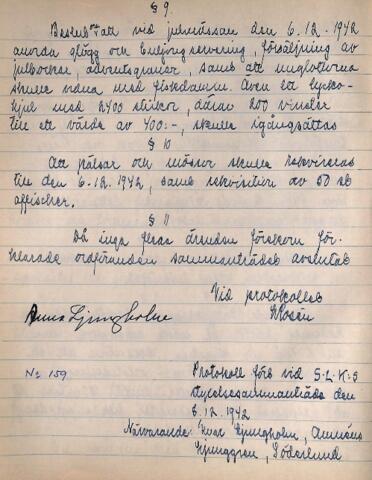 § 9.
Beslutats att vid julmässan den 6.12.1942
anorda glögg och servering, försäljning av
julbockar, adventsgranar, samt att ungflottorna
skulle med fiskdamm. Även ett lycko-
hjul med 2400 stickor, därav 200 vinster
till ett värde av 400:-, skulle igångsättas
§ 10
Att pälsar och mössor skulle rekvireras
till den 6.12.1942, samt rekvisition av 50 st
affischer.
§ 11
Då inga flera ärenden förekom för-
klarade ordföranden sammanträdet avslutat
Vid protokollet
Anna Ljungholm
No 159
Protokoll förb vid S.L.K:s
styrelsesammanträde den
8.12.1942
Närvarande: Ljungholm,
Ljunggren, Söderlund